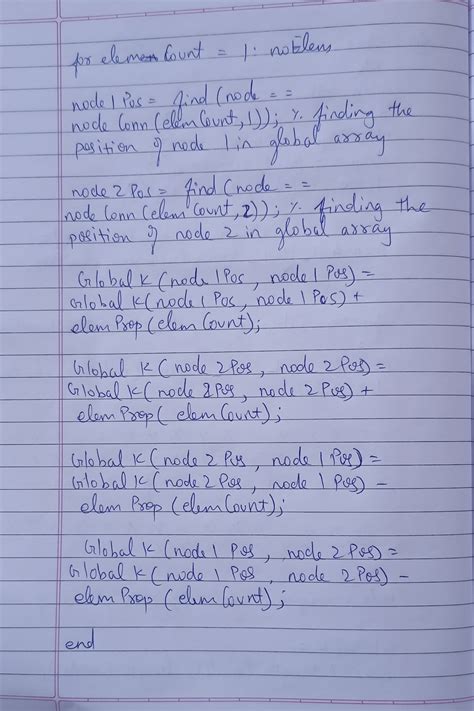 for elemCount = 1: noElems
node 1 Pos = find (node ==
node Conn (elemCount, 1)); % finding the
position of node 1 in global array
node 2 Pos = find (node ==
node Conn (elemCount, 2)); % finding the
position of node 2 in global array
Global K (node 1 Pos, node 1 Pos) =
Global K (node 1 Pos, node 1 Pos) +
elem Prop (elemCount);
Global K (node 2 Pos, node 2 Pos) =
Global K (node 2 Pos, node 2 Pos) +
elem Prop (elemCount);
Global K (node 2 Pos, node 1 Pos) =
Global K (node 2 Pos, node 1 Pos) -
elem Prop (elemCount);
Global K (node 1 Pos, node 2 Pos) =
Global K (node 1 Pos, node 2 Pos) -
elem Prop (elemCount);
end